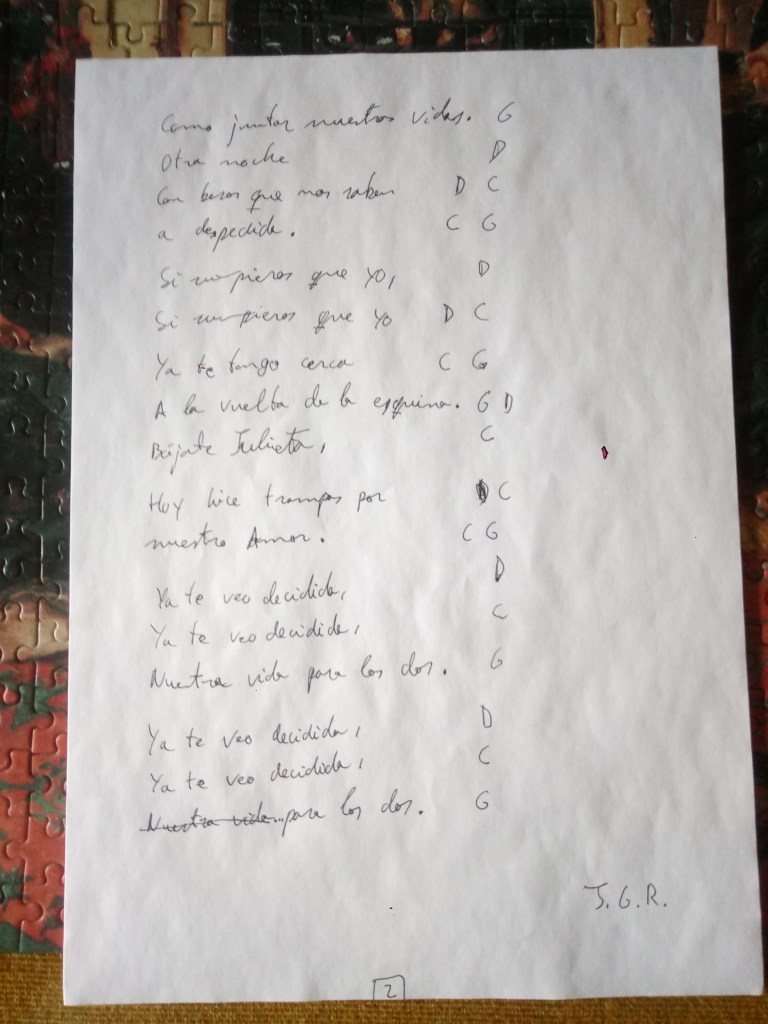 Como juntar nuestras vidas. G
Otra noche D
Con besos que nos saben D C
a despedida. C G
Si supieras que yo, D
Si supieras que yo D C
Ya te tengo cerca C G
A la vuelta de la esquina. G D
Bájate Julieta, C
Hoy hice trampas por C
nuestro Amor. C G
Ya te veo decidida, D
Ya te veo decidida, C
Nuestra vida para los dos. G
Ya te veo decidida, D
Ya te veo decidida, C
Nuestra vida... para los dos. G
J.G.R.
2